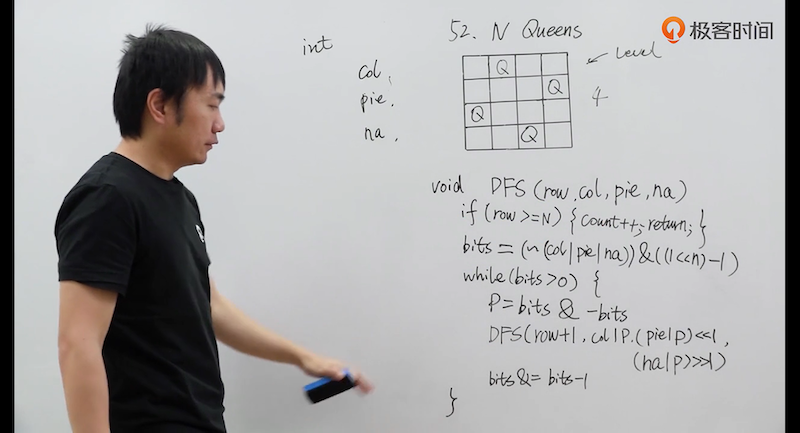 极客时间
52. N Queens
int
col,
pie.
na,
Level
Q
Q
4
Q
Q
void DFS(row,col,pie,na)
if (row>=N) { count++; return; }
bits = (~(col|pie|na))&((1<<n)-1)
while(bits>0) {
P=bits & -bits
DFS(row+1, col|P, (pie|p)<<1,
(na|p)>>1)
bits&= bits-1
}